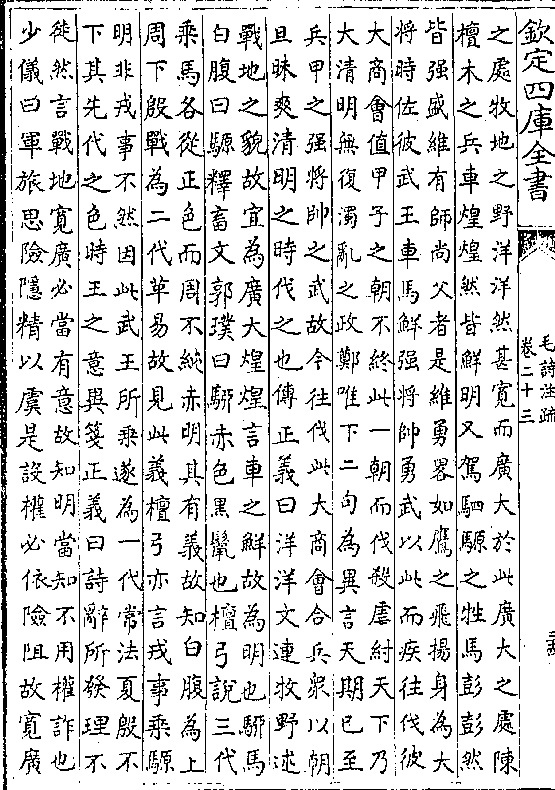 欽定四庫全書
毛詩注疏
卷二十三
之處牧地之野洋洋然甚寛而廣大於此廣大之處陳
檀木之兵車煌煌然皆鮮明又駕駟騵之牲馬彭彭然
皆强盛維有師尚父者是維勇略如鷹之飛揚身為大
將時佐彼武王車馬鮮强將帥勇武以此而疾往伐彼
大商會值甲子之朝不終此一朝而伐殺虐紂天下乃
大清明無復濁亂之政鄭唯下二句為異言天期已至
兵甲之强將帥之武故今往伐此大商會合兵衆以朝
旦昧爽清明之時代之也傳正義曰洋洋文連牧野述
戰地之貌故宜為廣大煌煌言車之鮮故為明也駵馬
白腹曰騵釋畜文郭璞曰駵赤色黑鬛也檀弓說三代
乘馬各從正色而周不純赤明其有義故知白腹為上
周下殷戰為二代革易故見此義檀弓亦言戎事乘騵
明非戎事不然因此武王所乘遂為一代常法夏殷不
下其先代之色時王之意與箋正義曰詩辭所發理不
徒然言戰地寛廣必當有意故知明當知不用權詐也
少儀曰軍旅思險隱精以虞是設權必依險阻故寛廣